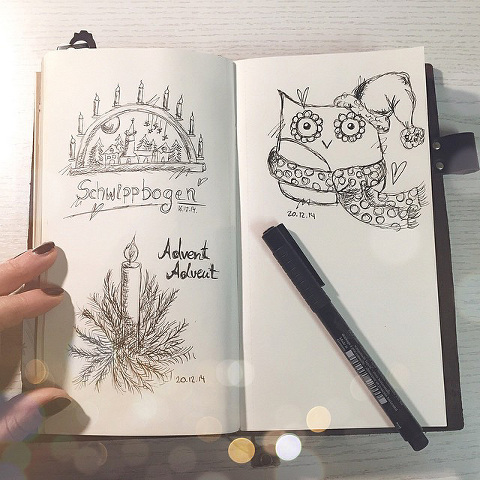 Schwippbogen
18.12.14.
Advent
Advent
20.12.14
20.12.14